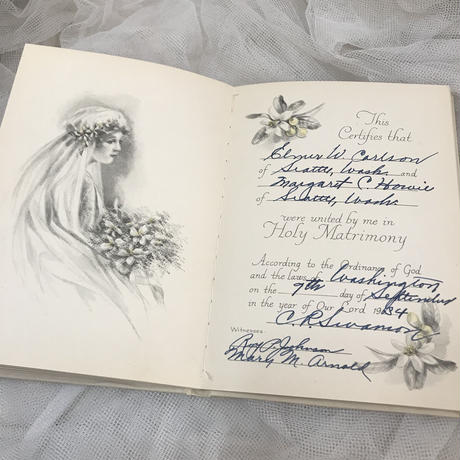 This
Certifies that
Elmer W. Carlson
of Seattle, Wash. and
Margaret C Howie
of Seattle, Wash.
were united by me in
Holy Matrimony
According to the Ordinance of God
and the laws of Washington
on the 9th day of September
in the year of Our Lord 1934
C. R. Swanson
Witnesses:
Roy P. Johnson
Mary M. Arnold